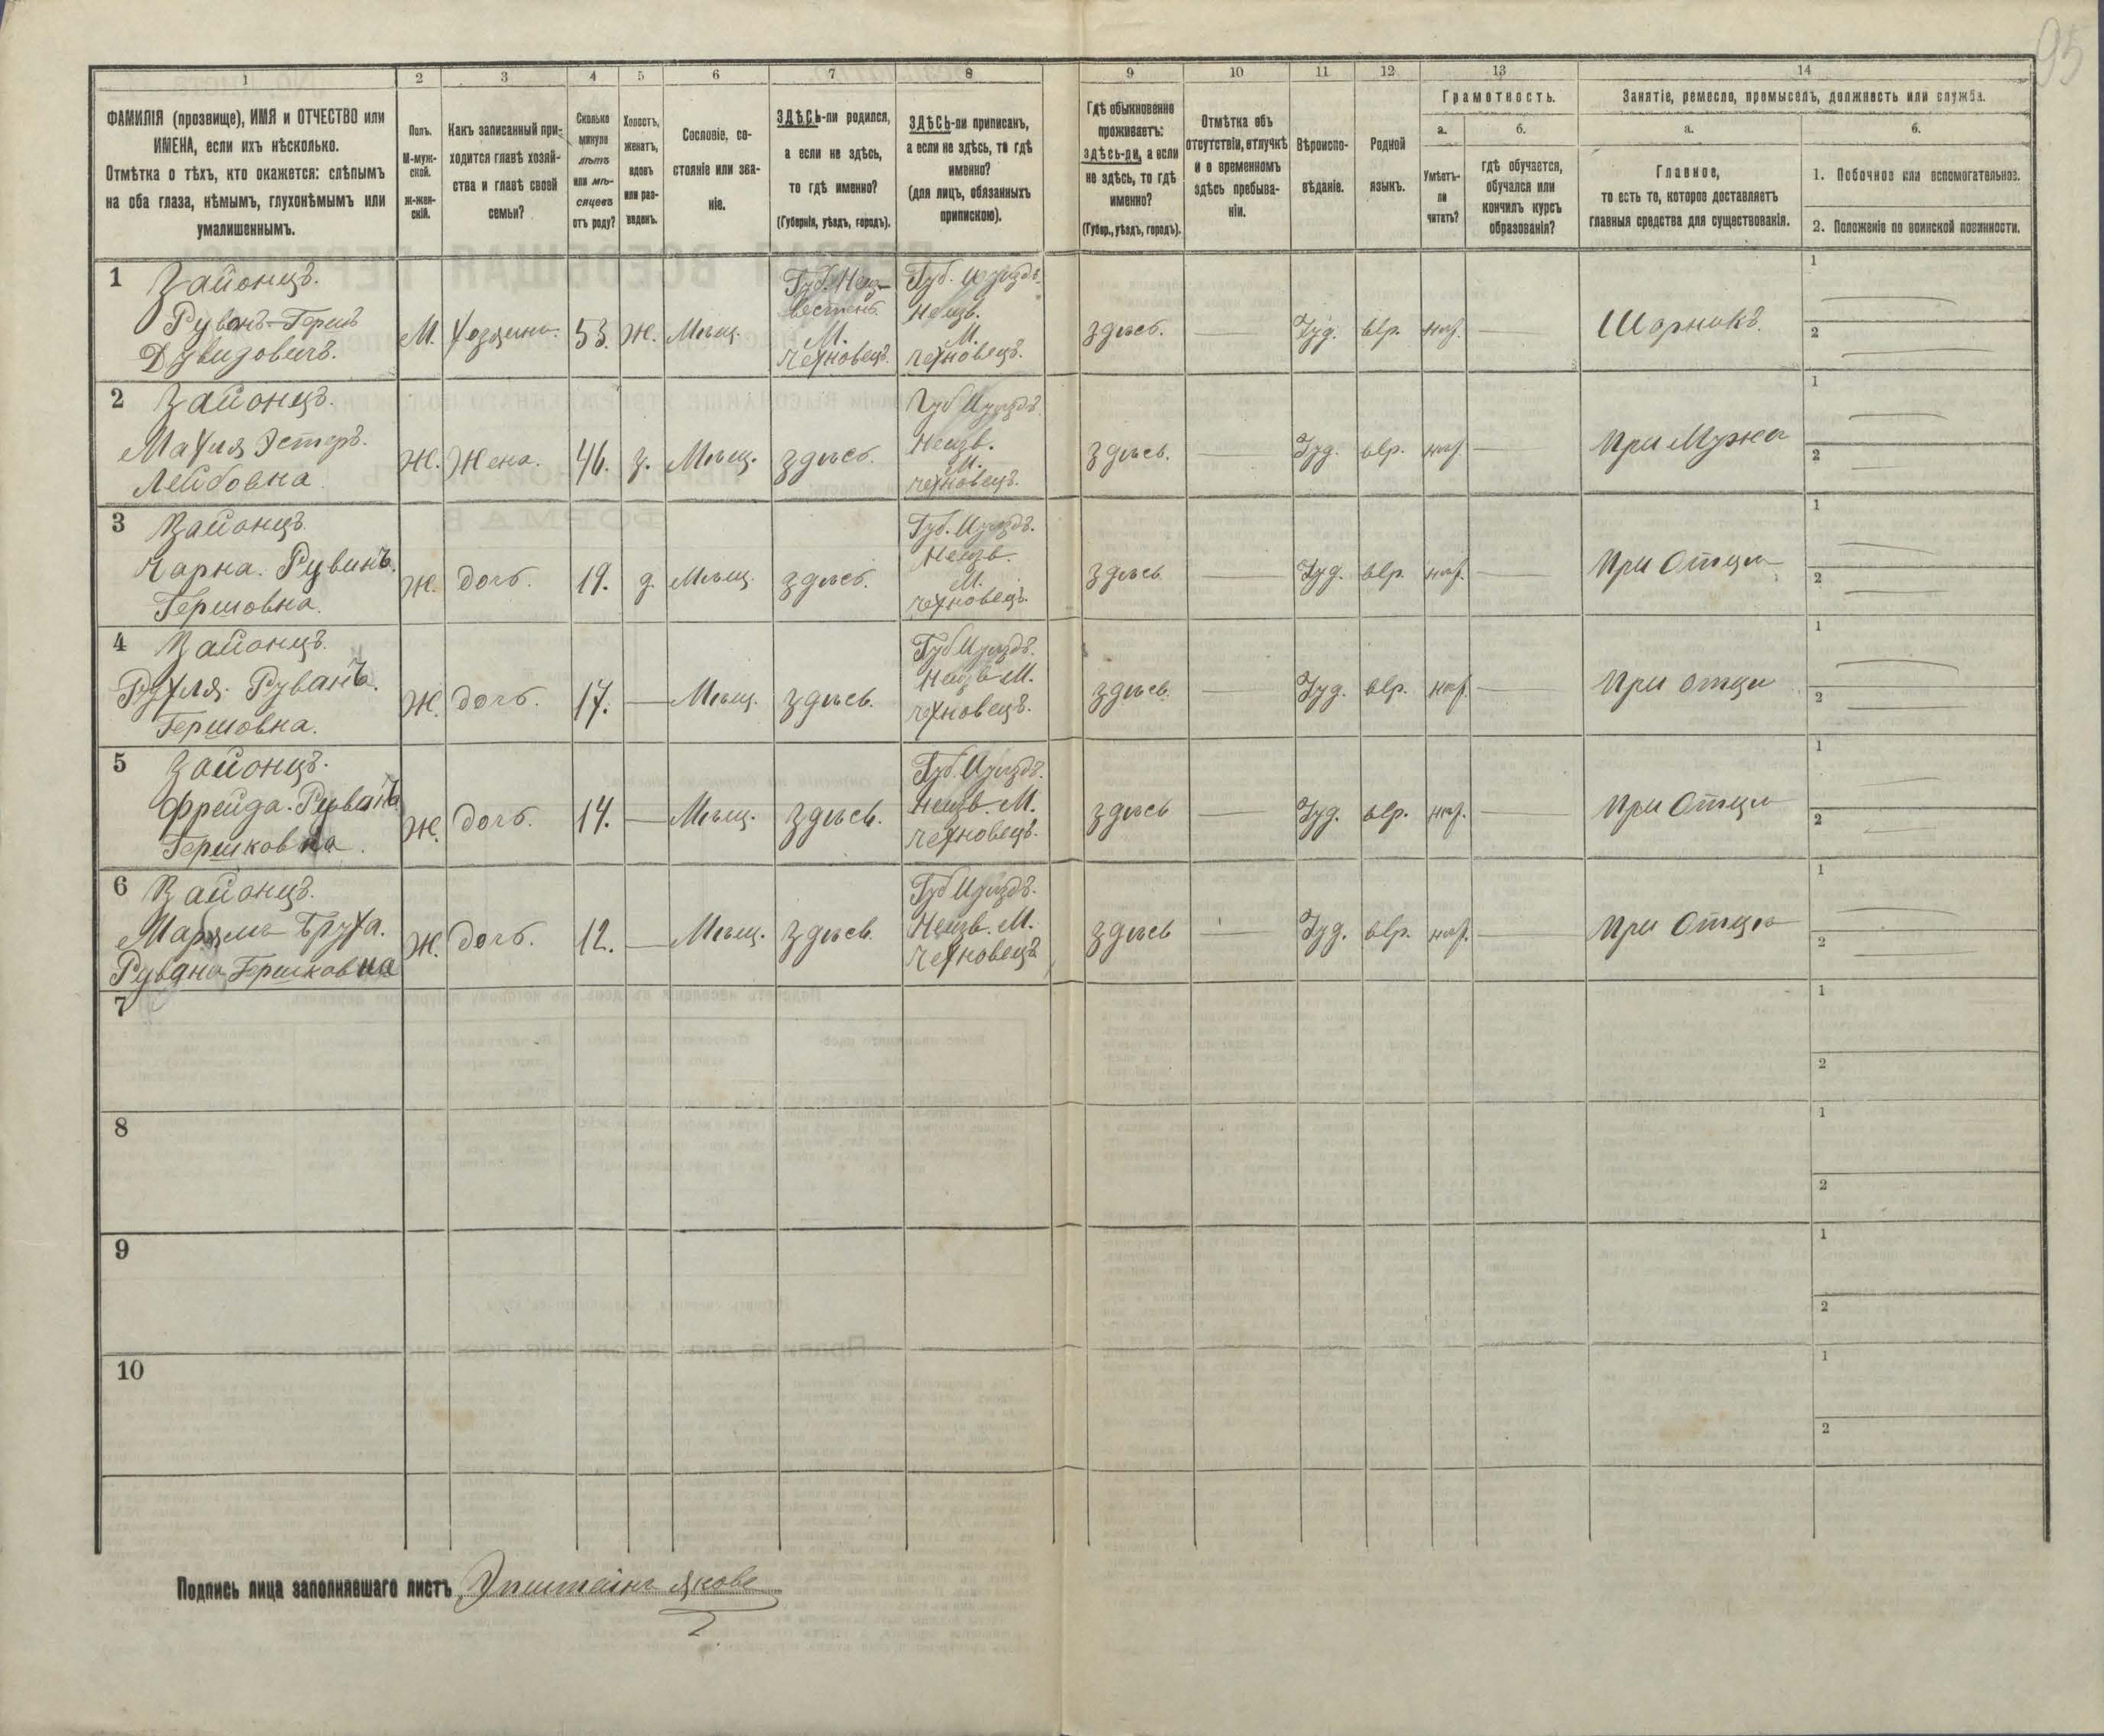 95
1 2 3 4 5 6 7 8 9 10 11 12 13 14
ФАМИЛІЯ (прозвище), ИМЯ и ОТЧЕСТВО или
ИМЕНА, если ихъ нѣсколько.
Отмѣтка о тѣхъ, кто окажется: слѣпымъ
на оба глаза, нѣмымъ, глухонѣмымъ или
умалишеннымъ.
Полъ.
М-муж-
ской.
Ж-жен-
скій.
Какъ записанный при-
ходится главѣ хозяй-
ства и главѣ своей
семьи?
Сколько
минуло
лѣтъ
или мѣ-
сяцевъ
отъ роду?
Холостъ,
женатъ,
вдовъ
или раз-
веденъ.
Сословіе, со-
стояніе или зва-
ніе.
ЗДѢСЬ-ли родился,
а если не здѣсь,
то гдѣ именно?
(Губернія, уѣздъ, городъ).
ЗДѢСЬ-ли приписанъ,
а если не здѣсь, то гдѣ
именно?
(для лицъ, обязанныхъ
припискою).
Гдѣ обыкновенно
проживаетъ:
здѣсь-ли, а если
не здѣсь, то гдѣ
именно?
(Губер., уѣздъ, городъ).
Отмѣтка объ
отсутствіи, отлучкѣ
и о временномъ
здѣсь пребыва-
ніи.
Вѣроиспо-
вѣданіе.
Родной
языкъ.
Грамотность.
а.
Умѣетъ-
ли
читать?
б.
гдѣ обучается,
обучался или
кончилъ курсъ
образованія?
Занятіе, ремесло, промыселъ, должность или служба.
а.
Главное,
то есть то, которое доставляетъ
главныя средства для существованія.
б.
1. Побочное или вспомогательное.
2. Положеніе по воинской повинности.
1 Зайонцъ.
Рувенъ-Гершъ
Дувидовичъ.
М. Хозяинъ. 53. Ж. Мѣщ.
Губ. Неиз-
вестенъ.
М.
Чехновецъ.
Губ. И уѣздъ.
Неизв.
М.
Чехновецъ.
здѣсь. Іуд. евр. Шорникъ. 1
2
2 Зайонцъ.
Махля Эстеръ.
Лейбовна.
Ж. Жена. 46. з. Мѣщ. здѣсь.
Губ И уѣздъ.
Неизв.
М.
Чехновецъ.
здѣсь. Іуд. евр. При Мужѣ 1
2
3 Зайонцъ.
Чарна. Рувинъ.
Гершовна.
Ж. дочь. 19. д. Мѣщ. здѣсь.
Губ. И уѣздъ.
Неизв.
М.
Чехновецъ.
здѣсь Іуд. евр. При Отцѣ 1
2
4 Зайонцъ.
Рухля. Руванъ.
Гершовна.
Ж. дочь. 17. Мѣщ. здѣсь.
Губ И уѣздъ.
Неизв М.
Чехновецъ.
здѣсь. Іуд. евр. При отцѣ 1
2
5 Зайонцъ.
Фрейда. Руванъ
Гершковна.
Ж. дочь. 14. Мѣщ. здѣсь.
Губ. И уѣздъ.
Неизв. М.
Чехновецъ.
здѣсь Іуд. евр. При Отцѣ 1
2
6 Зайонцъ.
Бруха.
Гершковна
Ж. дочь. 12. Мѣщ. здѣсь.
Губ И уѣздъ.
Неизв. М.
Чехновецъ
здѣсь Іуд. евр. При Отцѣ 1
2
7 1
2
8 1
2
9 1
2
10 1
2
Подпись лица заполнявшаго листъ